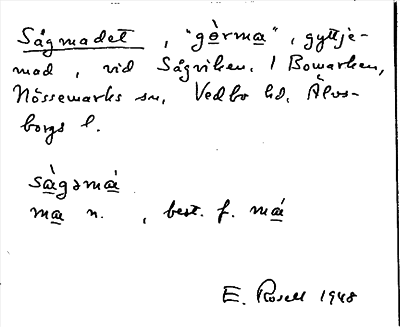 Sågmadet, "gòrma", gyttje-
mad, vid Sågviken. / Bowarken,
Nössemarks sn, Vedbo hd, Älvs-
borgs l.
sàgəmá
ma n., best. f. má
E. Rosell 1948